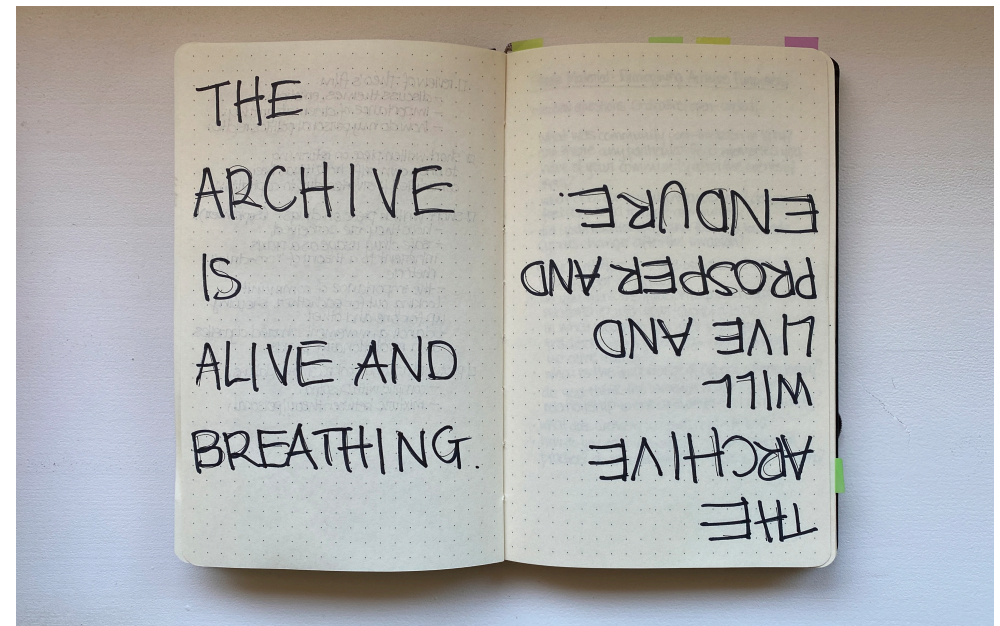 THE
ARCHIVE
IS
ALIVE AND
BREATHING.
THE
ARCHIVE
WILL
LIVE AND
PROSPER AND
ENDURE.